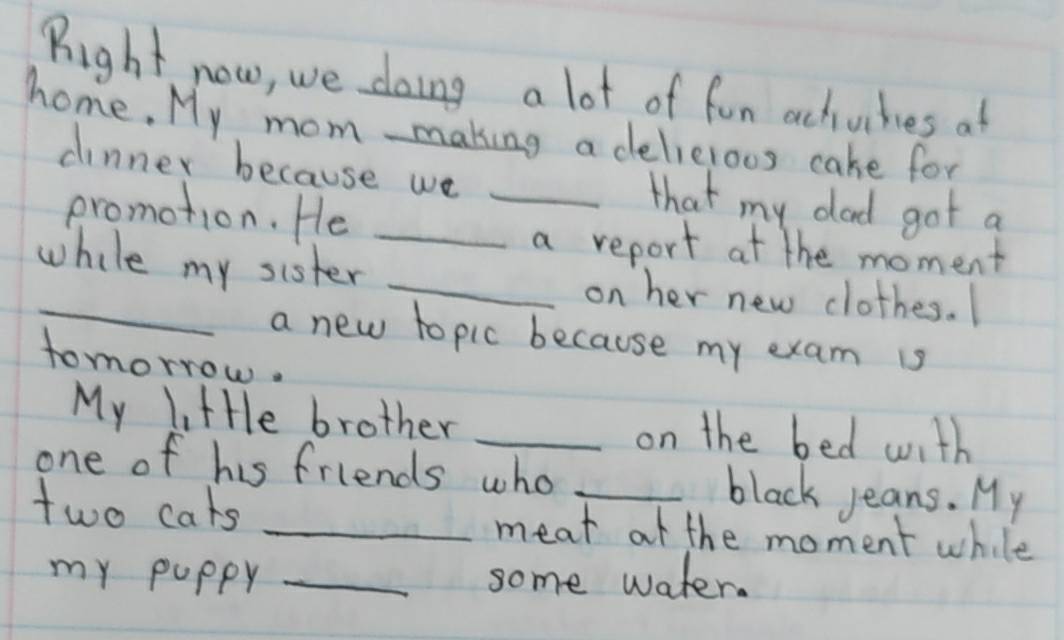 Right now, we doing a lot of fun activities at
home. My mom making a delicious cake for
dinner because we ______ that my dad got a
promotion. He ______ a report at the moment
while my sister ______ on her new clothes. I
______ a new topic because my exam is
tomorrow.
My little brother ______ on the bed with
one of his friends who ______ black jeans. My
two cats ______ meat at the moment while
my puppy ______ some water.